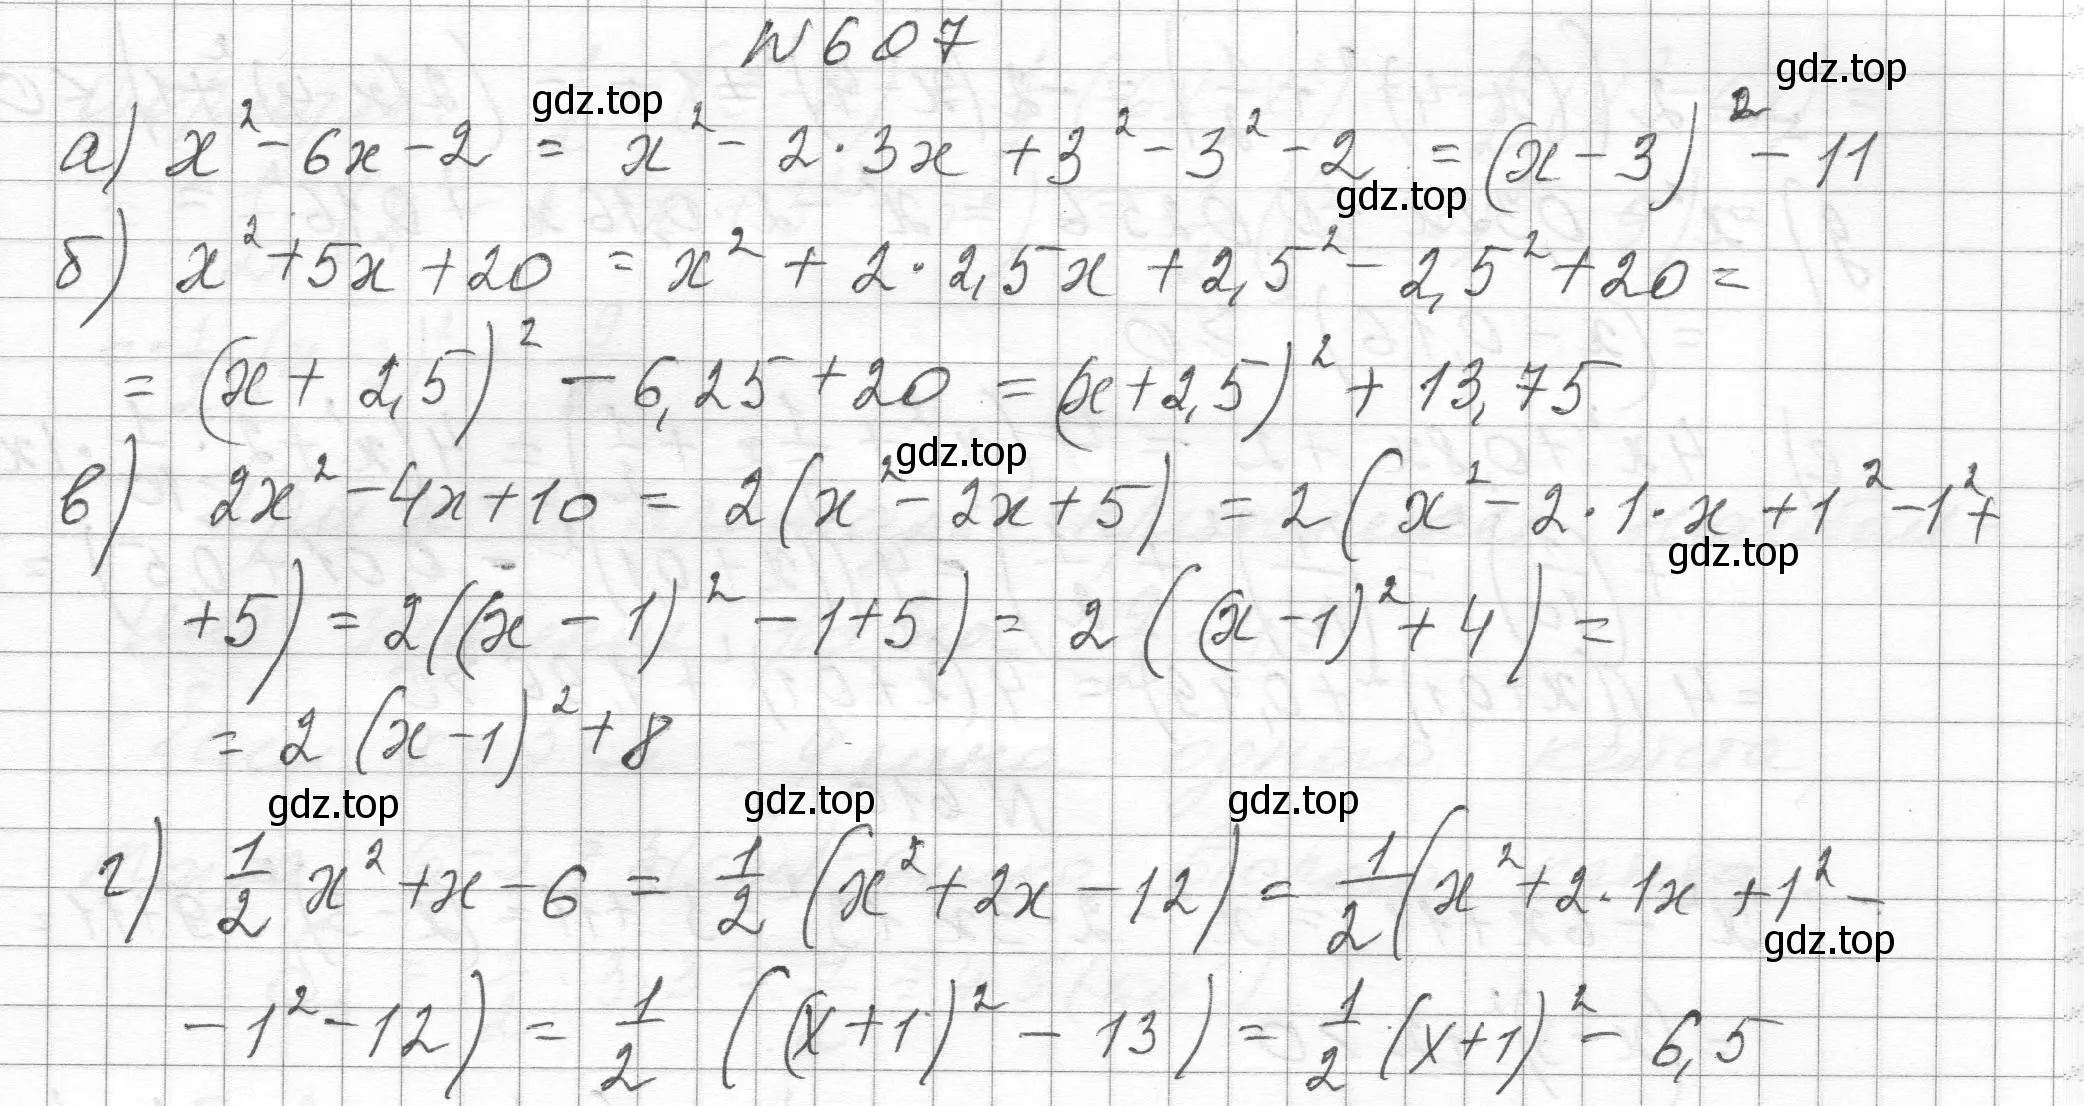 N 607
gdz.top
gdz.top
а) x² - 6x - 2 = x² - 2·3x + 3² - 3² - 2 = (x - 3)² - 11
gdz.top
б) x² + 5x + 20 = x² + 2·2,5x + 2,5² - 2,5² + 20 =
= (x + 2,5)² - 6,25 + 20 = (x + 2,5)² + 13,75
gdz.top
в) 2x² - 4x + 10 = 2(x² - 2x + 5) = 2(x² - 2·1·x + 1² - 1² +
gdz.top
+ 5) = 2((x - 1)² - 1 + 5) = 2((x - 1)² + 4) =
= 2(x - 1)² + 8
gdz.top
gdz.top
gdz.top
г) 1/2 x² + x - 6 = 1/2 (x² + 2x - 12) = 1/2 (x² + 2·1x + 1² -
gdz.top
- 1² - 12) = 1/2 ((x + 1)² - 13) = 1/2 (x + 1)² - 6,5